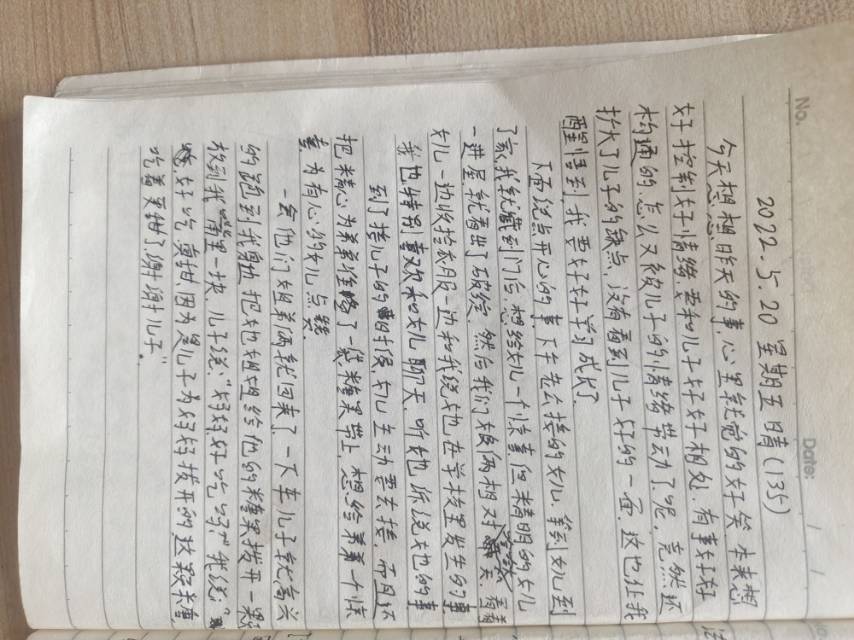 No.
Date:
2022.5.20 星期五 晴(135)
今天想想昨天的事,心里就觉的好笑,本来想
好好控制好情绪,要和儿子好好相处,有事好好
沟通的,怎么又被儿子的小情绪带动了呢,竟然还
扩大了儿子的缺点,没有看到儿子好的一面,这也让我
醒悟到,我要好好学习成长了.
下面说点开心的事,下午老公接的女儿,等到女儿到
了家,我就藏到门后,想给女儿一个惊喜,但精明的女儿
一进屋就看出了破绽,然后我们娘俩相对
女儿一边收拾衣服一边和我说她在学校里发生的事
我也特别喜欢和女儿聊天,听她诉说她的事
到了接儿子的时候,女儿主动要去接,而且还
把精心为弟弟准备了一袋糖果带上,想给弟弟一个惊
喜,为有心的女儿点赞
一会他们姐弟俩就回来了,一下车儿子就高兴
的跑到我身边,把她姐姐给他的糖果拨开一颗
放到我嘴里一块,儿子说:“妈妈好吃吗?”我说:“
好吃,真甜,因为是儿子为妈妈拨开的,这颗糖
吃着更甜了,谢谢儿子”。